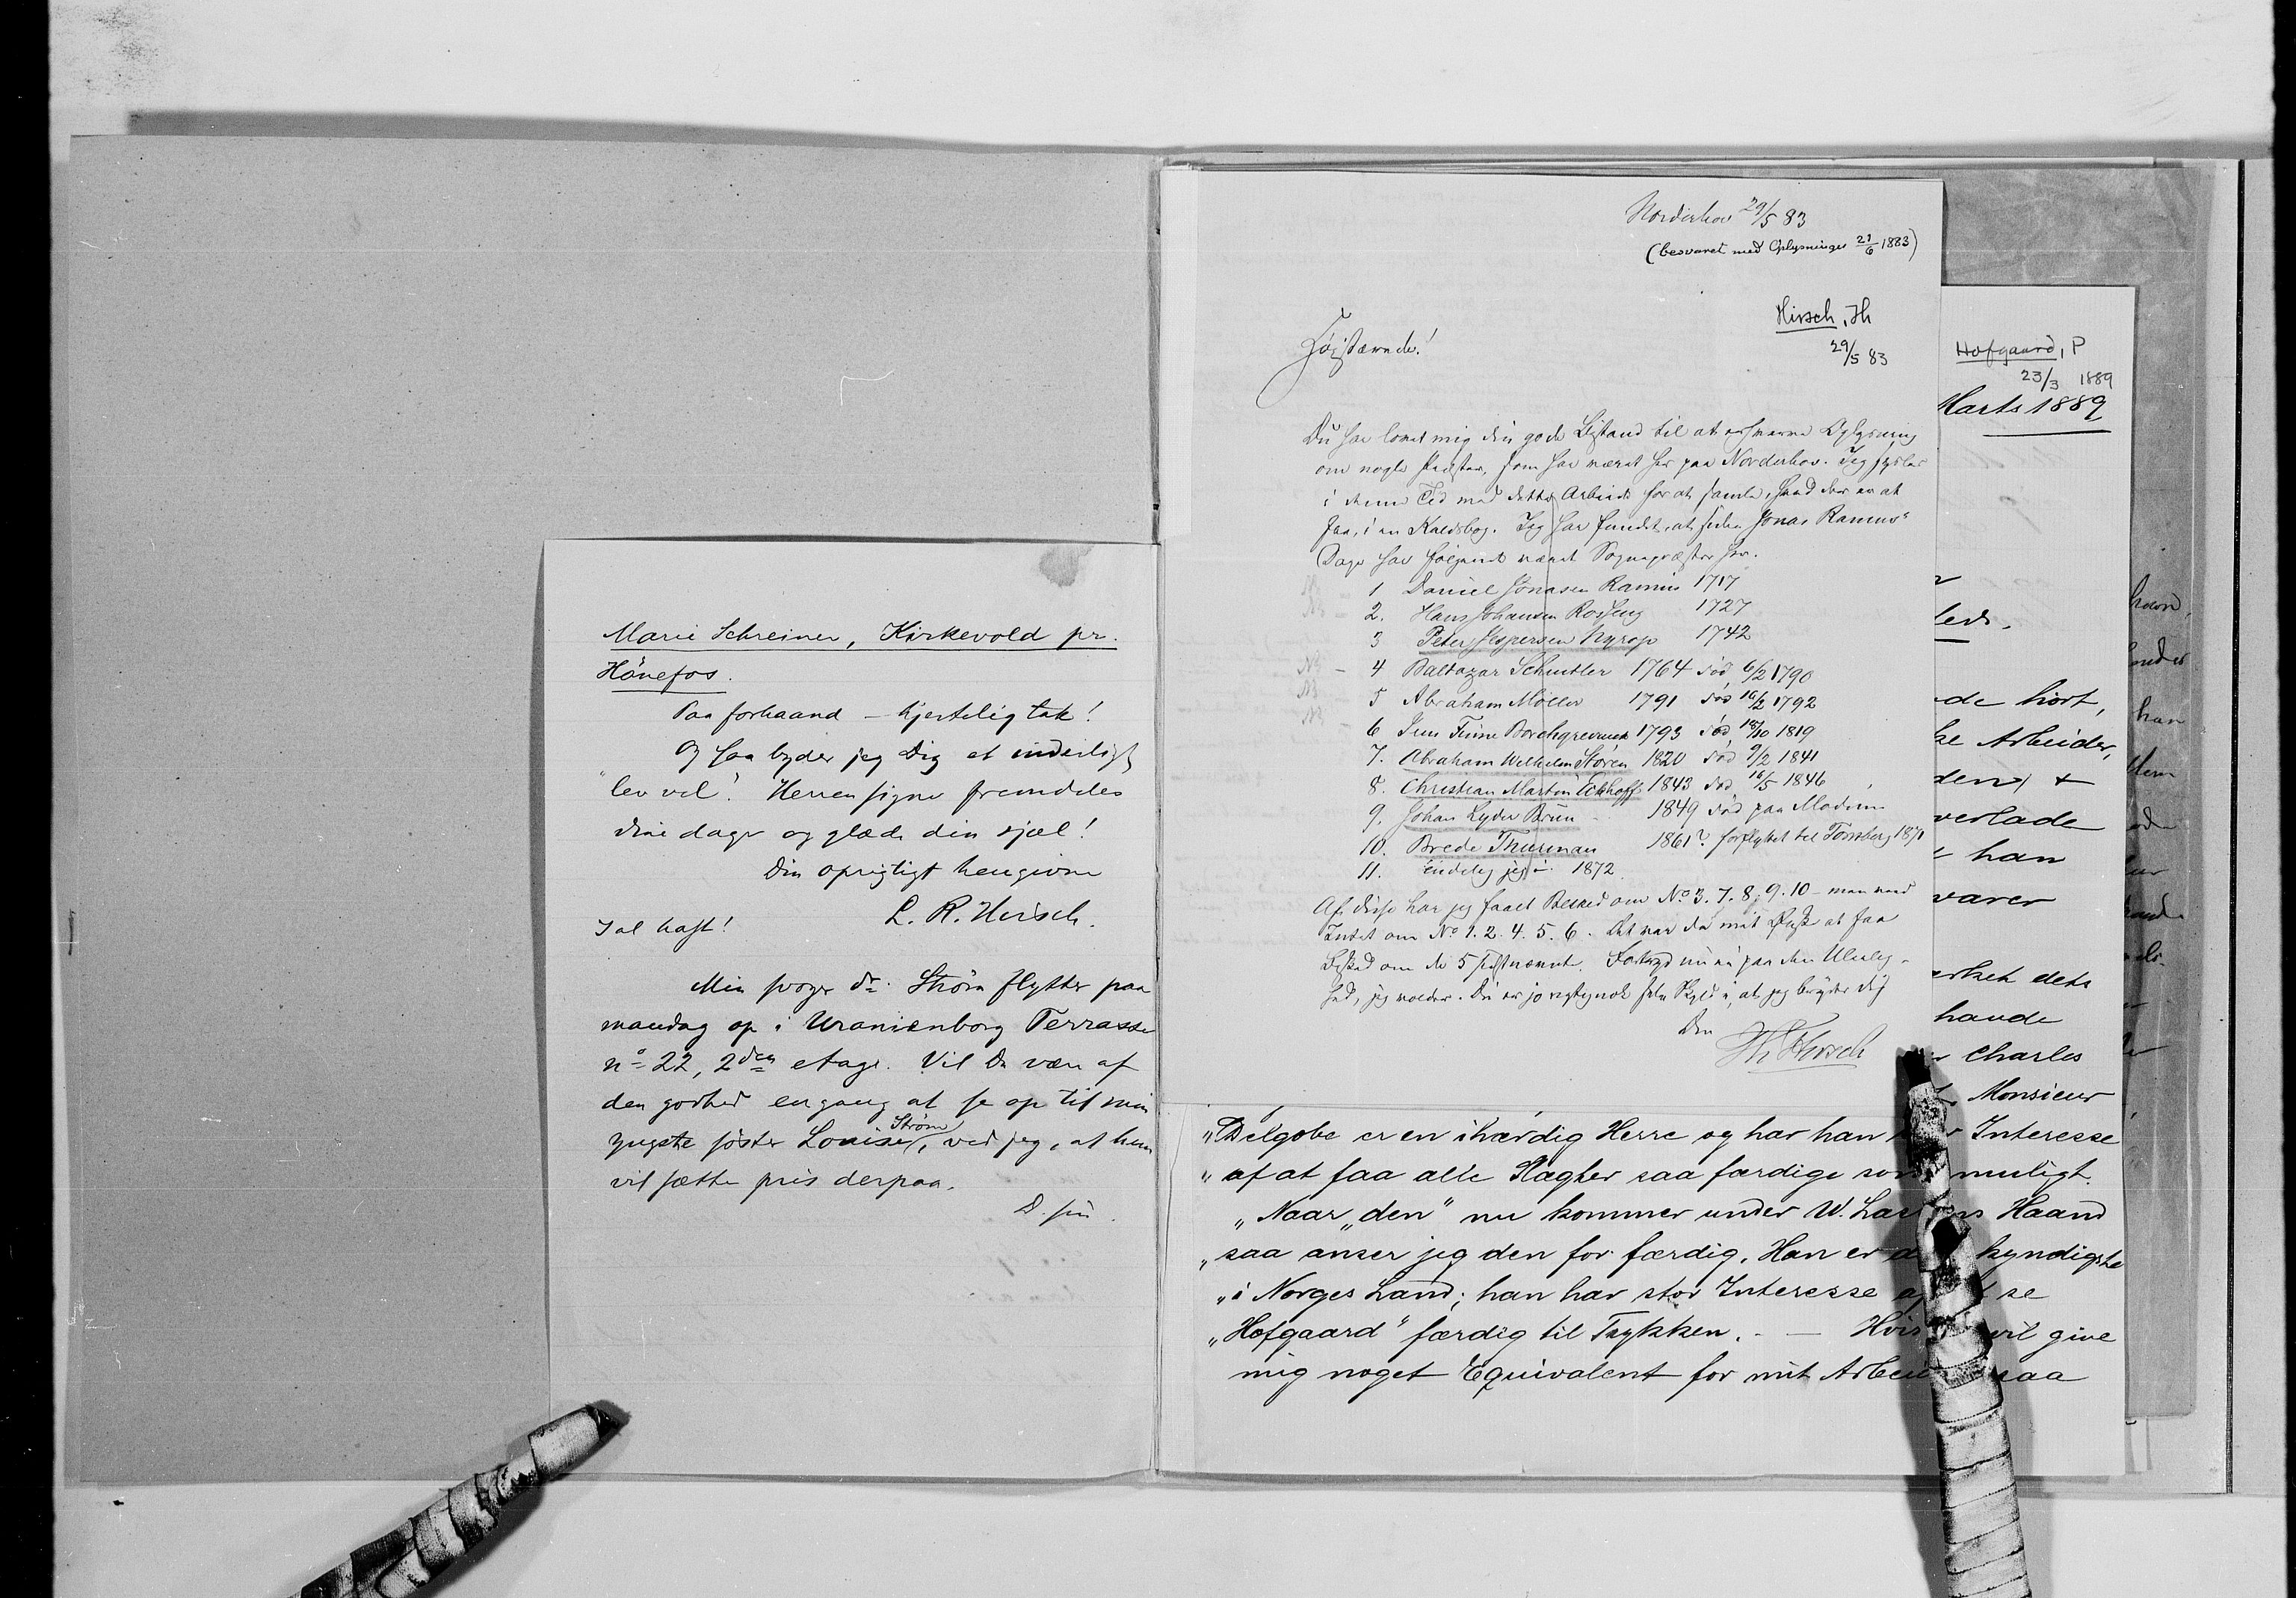 Marie Schreiner, Kirkevold pr.
Hönefos.
Paa forhaand – hjertelig tak!
Og saa byder jeg Dig et inderligt
"lev vel"! Herren signe fremdeles
dine dage og glæde din sjæl!
Din oprigtigt hengivne
L. R. Hirsch.
I al hast!
Min svoger dr. Strøm flytter paa
mandag op i Uranienborg Terrasse
nº 22, 2den etage. Vil Du være af
den godhed engang at se op til min
yngste søster Louise Strøm, ved jeg, at hun
vil sætte pris derpaa.
D. s.
Norderhov 29/5 83
(besvaret med Oplysninger 21/6 1883)
Hirsch, Th
29/5 83
Høistærede!
Du har lovet mig din gode Bistand til at erhverve Oplysning
om nogle Prester, som har været her paa Norderhov. Jeg sysler
i denne Tid med dette Arbeide for at samle, hvad der er at
faa, i en Kaldsbog. Jeg har fundet, at siden Jonas Ramus'
Dage har følgende været Sognepræster her:
1 Daniel Jonasen Ramus 1717
2. Hans Johansen 1727
3 Peter Jespersen Nyrop 1742
NB – 4 Baltazar Schnitler 1764 død 6/2 1790
NB 5 Abraham Møller 1791 død 16/2 1792
NB – 6 Jens Finne Borchgrevink 1793 død 18/10 1819
7. Abraham Wilhelm Støren 1820 død 9/2 1841
8. Christian Martin Eckhoff 1843 død 16/5 1846
9. Johan Lyder Brun – 1849 død paa Modum
10. Brede Thurman 1861? forflyttet til Tønsberg 1871
11. Endelig jeg i 1872
Af disse har jeg faaet Besked om No 3. 7. 8. 9. 10 – men
Intet om No 1. 2. 4. 5. 6. Det var da mit Ønske at faa
Besked om de 5 sidstnævnte. Fortryd nu ei paa den Uleilig-
hed, jeg volder. Du er jo rigtignok selv Skyld i, at jeg bryder dig
Din
Th Hirsch
Hofgaard, P
23/3 1889
Marts 1889
leds.
de hört,
ke Arbeider,
den) &
verlade
han
varer
erket dets
havde
Charles
Monsieur
„Delgobe er en ihærdig Herre og har han Interesse
„af at faa alle Slagter saa færdige som muligt.
„Naar „den" nu kommer under W. Lassens Haand
„saa anser jeg den for færdig. Han er den kyndigste
„i Norges Land; han har stor Interesse af at se
„Hofgaard" færdig til Trykken. – – Hvis vil give
mig noget Equivalent for mit Arbeide saa